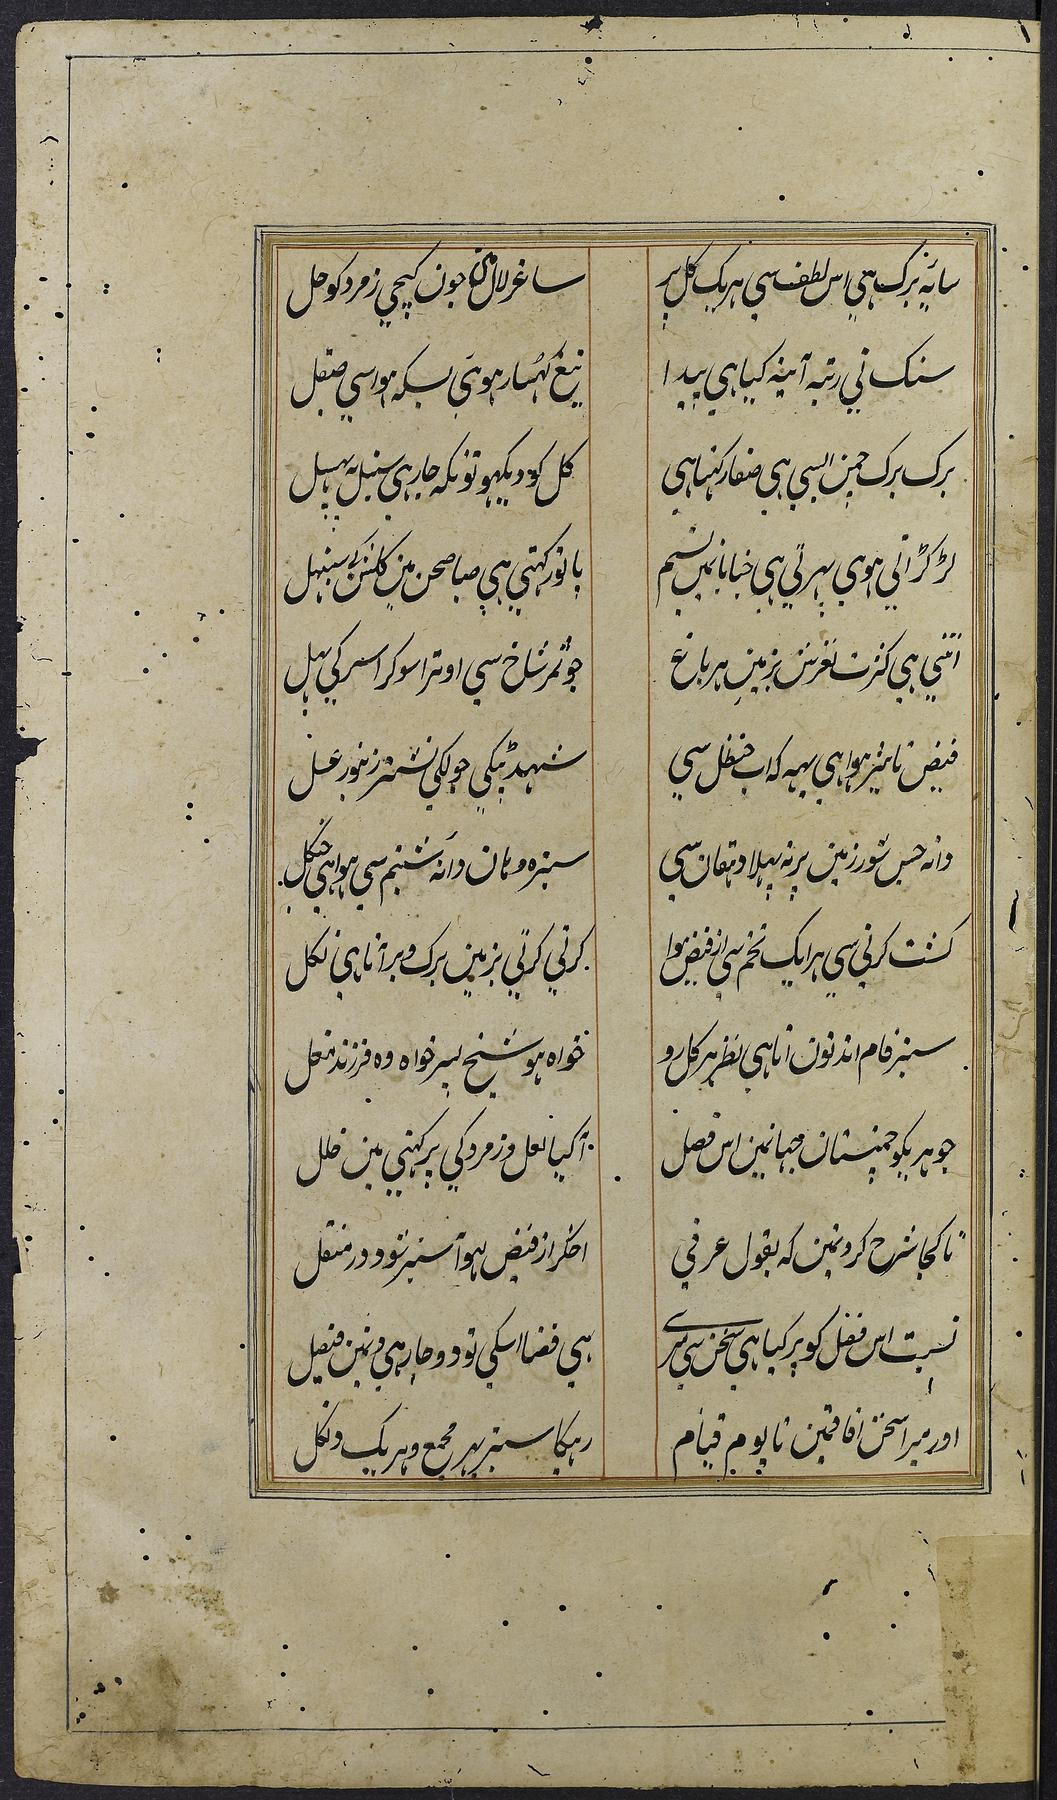 سایه برک هی اس لطف سی هریک کل پر
ساغر لال مین جون کیجی زمرد کو حل
سنک نی رتبه آینه کیا هی پیدا
تیغ کهسار هوئی بسکه هوا سی صیقل
برک برک چمن ایسی هی صفا رکتها هی
کل کو دیکهو تو نکه جا رهی سنبل په پهسل
لڑکڑاتی هوی پهرتی هی خیابانمین نسیم
پانو رکهتی هی صبا صحن مین کلشن کی سنبهل
اتنی هی کثرت لغزش بزمین هر باغ
جو ثمر شاخ سی اوترا سو کرا سر کی بهل
فیض تاثیر هوا هی یهه که اب حنظل سی
شهد ٹپکی جو لکی نشتر زنبور عسل
دانه جس شور زمین پر نه پهلا دهقان سی
سبزه وهان دانهٔ شبنم سی هوا هی جنکل
کشت کرنی سی هر ایک تخم سی از فیض هوا
کرتی کرتی بزمین برک و بر اتا هی نکل
سبز فام اندنون اتا هی نظر هر کل رو
خواه هو شیخ پسر خواه وه فرزند مغل
جوهریکو چمنستان جهانمین اس فصل
آکیا لعل و زمرد کی پرکهنی مین خلل
تا کجا شرح کرونمین که بقول عرفی
اخکر از فیض هوا سبز شود در منقل
نسبت اس فصل کو پر کیا هی سخن سی میری
هی فضا اسکی تو دو چار هی دنمین فیصل
اور میرا سخن افاقمین تا یوم قیام
رهیکا سبز بهر مجمع و هر یک دنکل